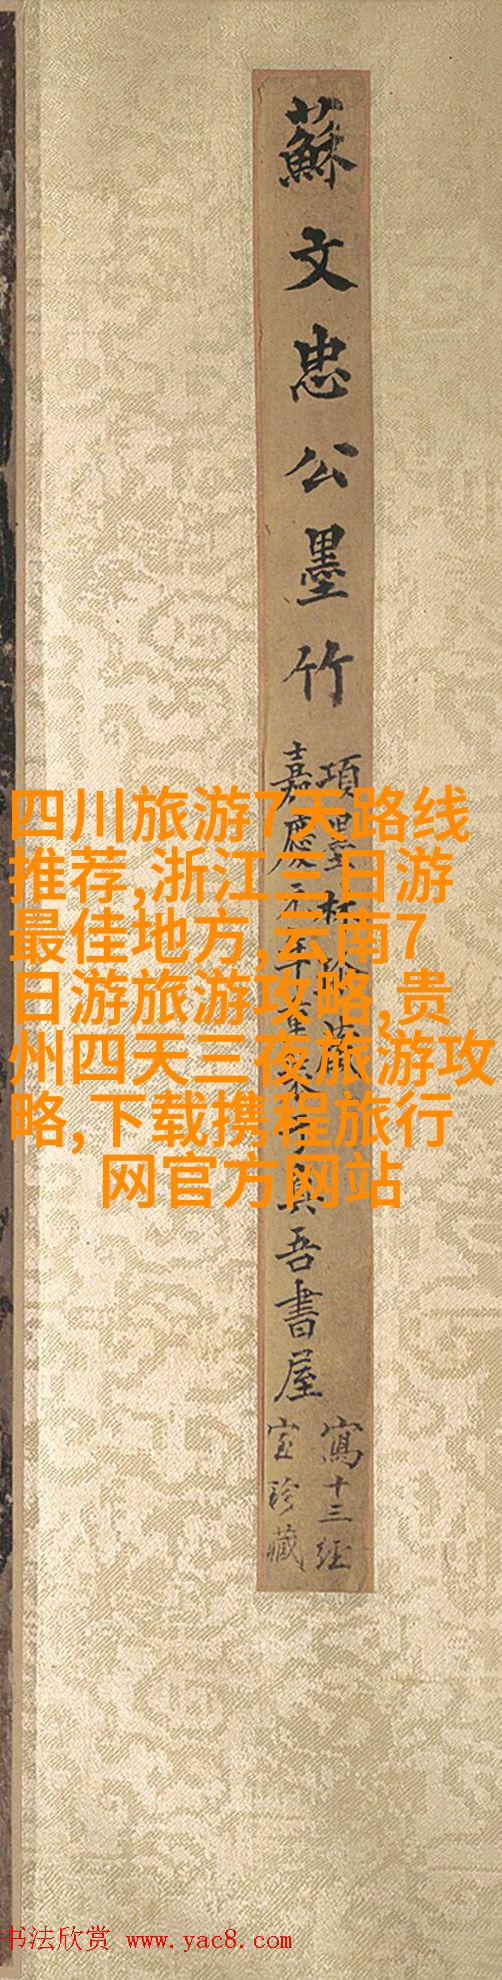 蘇文忠公墨竹
項墨林珍藏
嘉慶元年
吾書屋
寫十三經
室珍藏
四川旅游7天路线
推荐,浙江三日游
最佳地方,云南7
日游旅游攻略,贵
州四天三夜旅游攻
略,下载携程旅行
网官方网站
书法欣赏 www.yac8.com